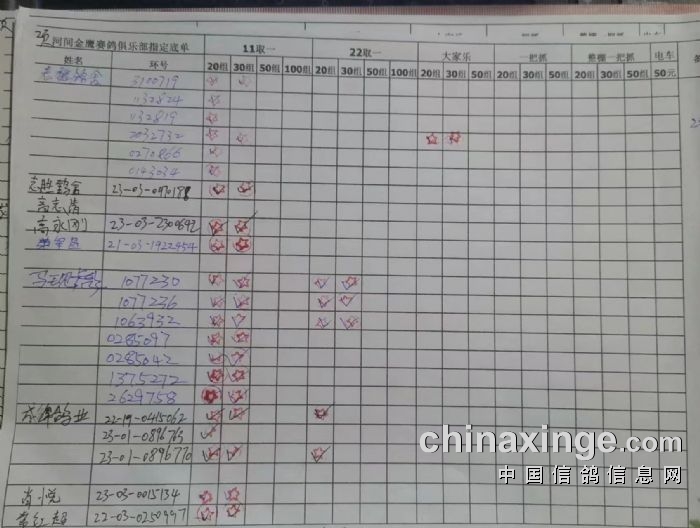 河间金鹰赛鸽俱乐部指定底单
11取一 22取一 大家乐 一把抓 整棚一把抓 电车
姓名 环号 20组 30组 50组 100组 20组 30组 50组 100组 20组 30组 50组 20组 30组 50组 20组 30组 50组 50元
3100719
1132824
1132819
2032732
0270866
0143034
志胜鸽舍 23-03-0470188
高志清
高永刚 23-03-2300692
21-03-1922454
1077230
1077236
1063932
0285097
0285042
1375272
2629758
22-19-0415062
23-01-0896763
23-01-0896770
肖悦 23-03-0015134
22-03-0250997
chinaxinge.com
中国信鸽信息网